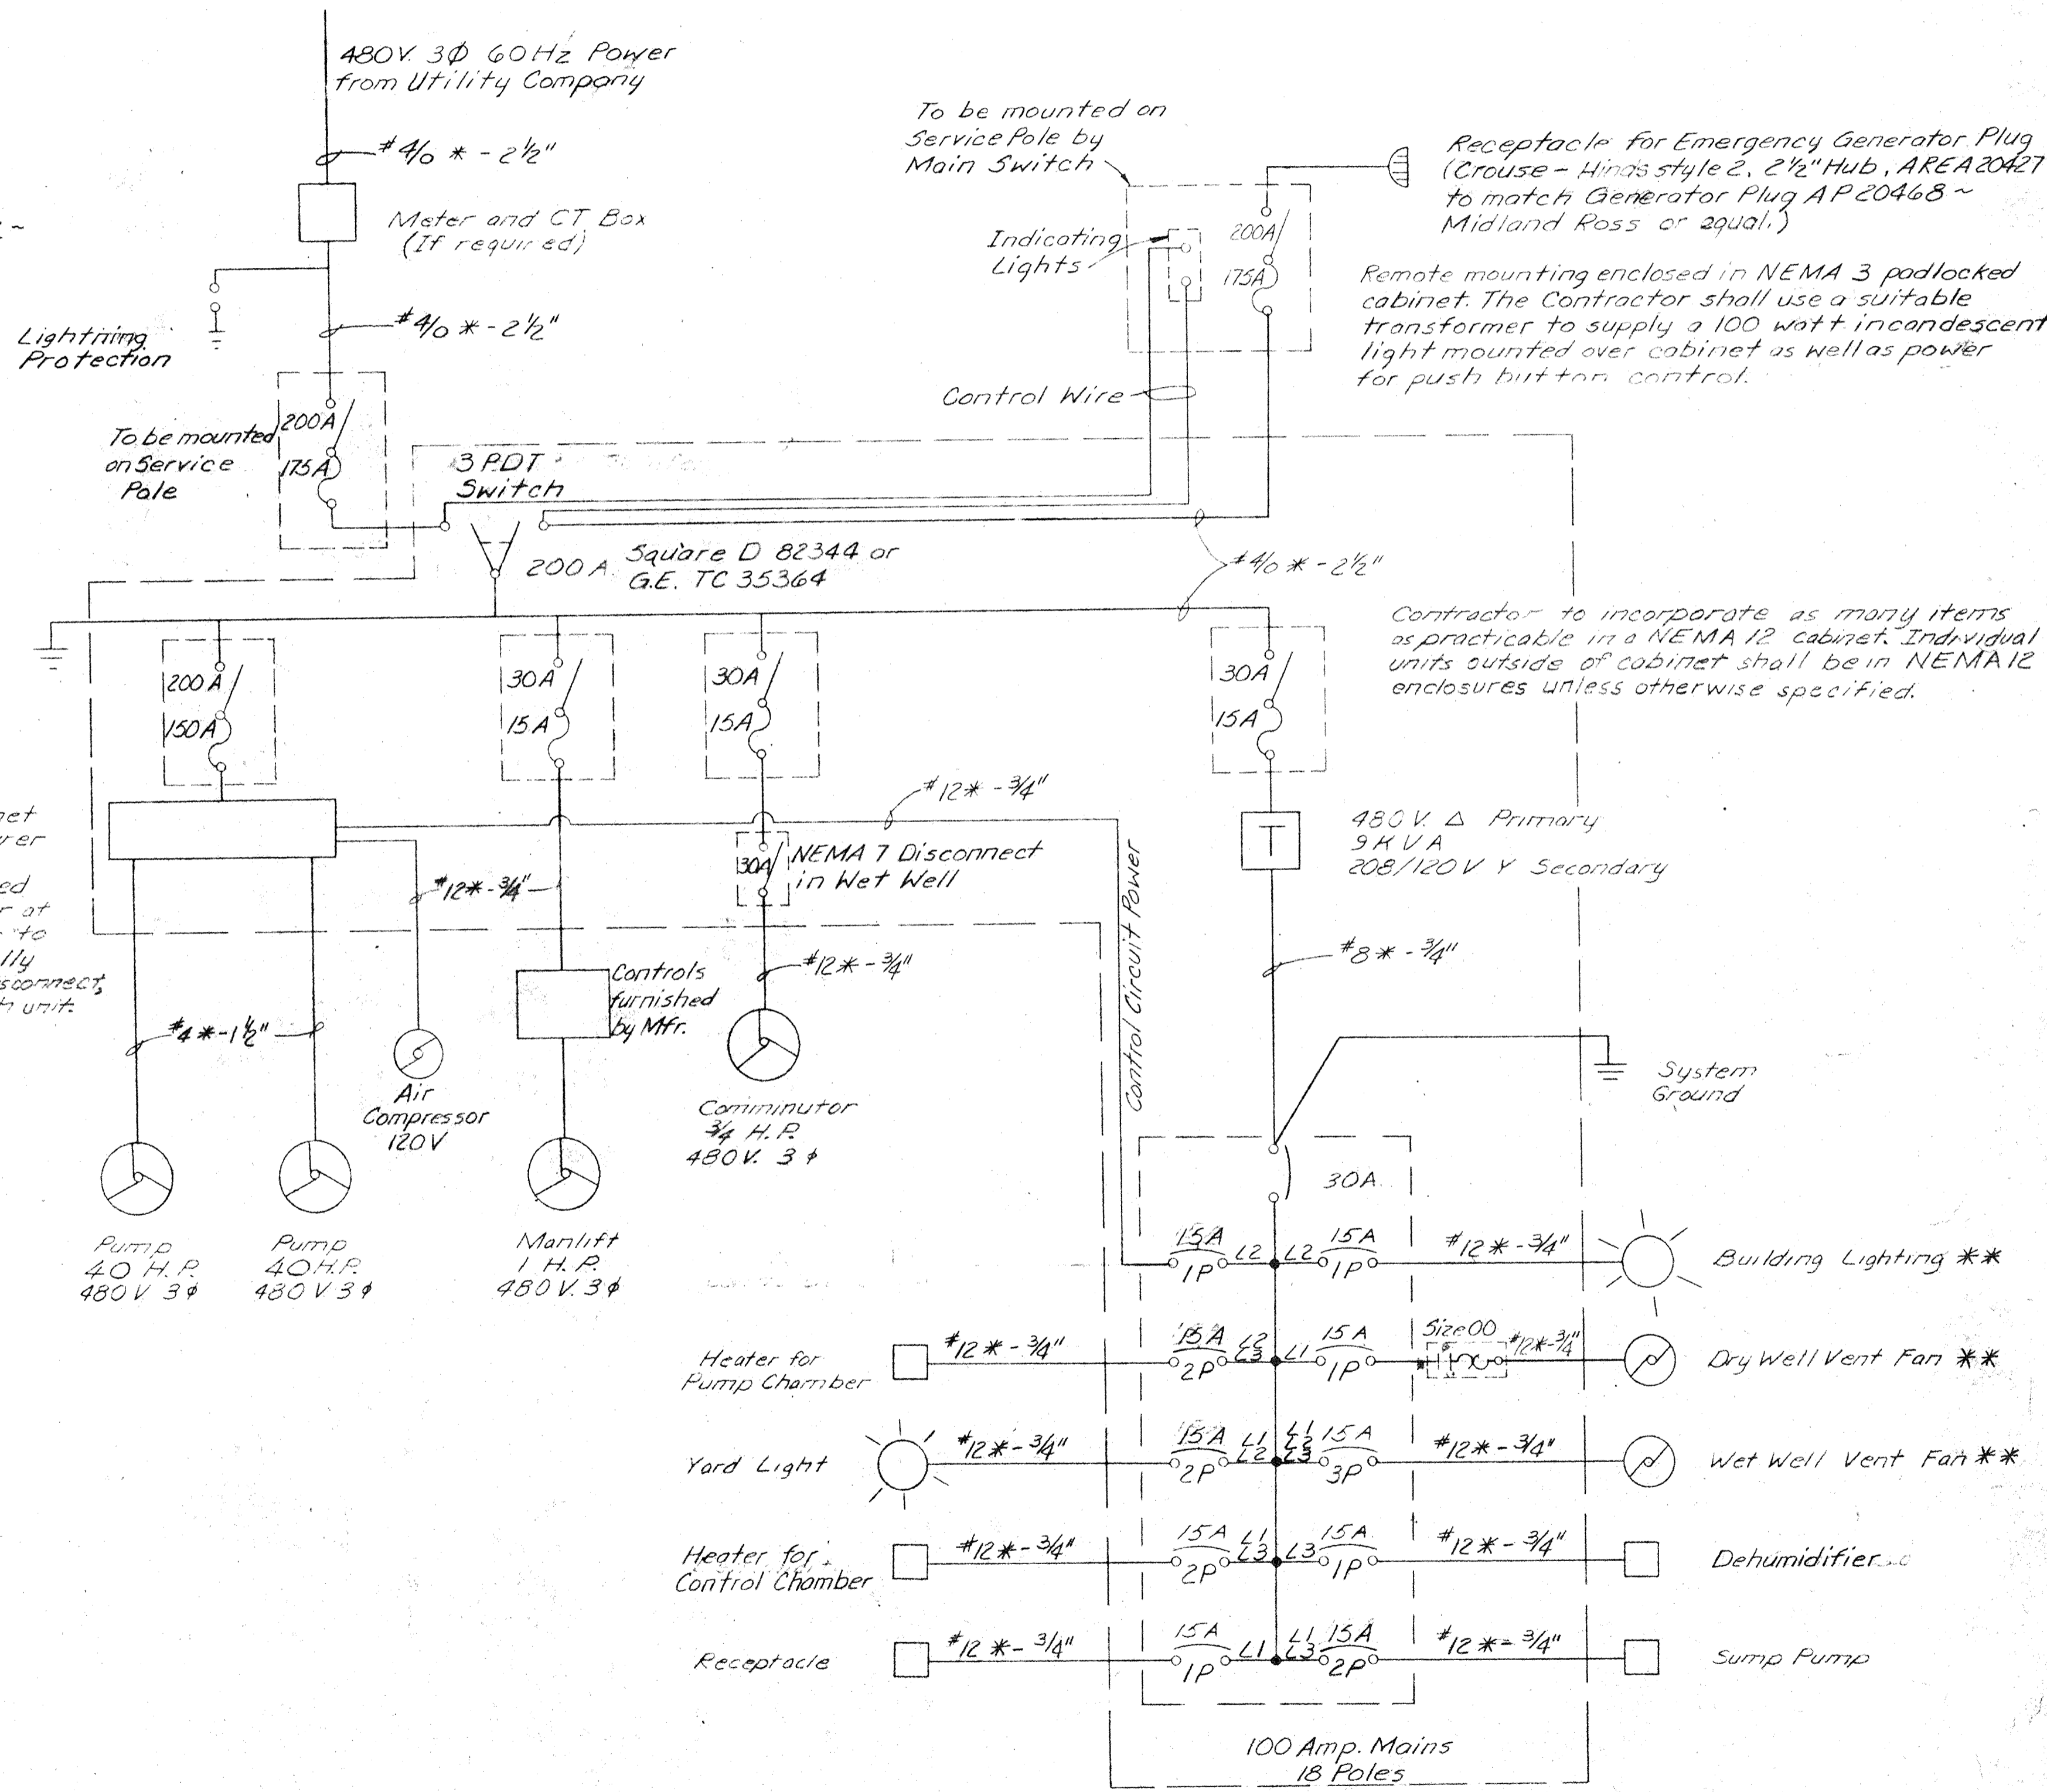 480V. 3Ø 60Hz Power
from Utility Company
#4/0 * - 2½"
Meter and CT Box
(If required)
Lightning
Protection
#4/0 * - 2½"
To be mounted
on Service
Pole
200A
175A
To be mounted on
Service Pole by
Main Switch
Indicating
Lights
200A
175A
Control Wire
Receptacle for Emergency Generator Plug
(Crouse - Hinds style 2, 2½" Hub, AREA 20427
to match Generator Plug AP 20468 ~
Midland Ross or equal.)
Remote mounting enclosed in NEMA 3 padlocked
cabinet. The Contractor shall use a suitable
transformer to supply a 100 watt incandescent
light mounted over cabinet as well as power
for push button control.
3 PDT
Switch
200A
Square D 82344 or
G.E. TC 35364
#4/0 * - 2½"
Contractor to incorporate as many items
as practicable in a NEMA 12 cabinet. Individual
units outside of cabinet shall be in NEMA 12
enclosures unless otherwise specified.
200A
150A
30A
15A
30A
15A
30A
15A
#12* - ¾"
30A
NEMA 7 Disconnect
in Wet Well
480 V. Δ Primary
9 KVA
208/120V Y Secondary
Control Circuit Power
#12* - ¾"
#12* - ¾"
#8* - ¾"
r at
to
lly
sconnect,
unit.
#4* - 1½"
Controls
furnished
by Mfr.
Air
Compressor
120V
Comminutor
¾ H.P.
480V. 3φ
System
Ground
Pump
40 H.P.
480V 3φ
Pump
40 H.P.
480V 3φ
Manlift
1 H.P.
480V. 3φ
30A.
15A 1P L2
L2 15A 1P
#12* - ¾"
Building Lighting **
Heater for
Pump Chamber
#12* - ¾"
15A 2P L2 L3
L1 15A 1P
Size 00
#12* - ¾"
Dry Well Vent Fan **
Yard Light
#12* - ¾"
15A 2P L1 L2
L1 L2 L3 15A 3P
#12* - ¾"
Wet Well Vent Fan **
Heater for
Control Chamber
#12* - ¾"
15A 2P L1 L3
L3 15A 1P
#12* - ¾"
Dehumidifier
Receptacle
#12* - ¾"
15A 1P L1
L1 L3 15A 2P
#12* - ¾"
Sump Pump
100 Amp. Mains
18 Poles